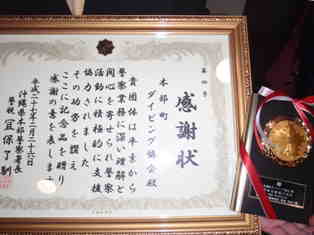 第四号
感謝状
本部町
ダイビング協会殿
貴団体は平素から
警察業務に深い理解と
関心を寄せられ警察
活動に積極的に支援
協力されました
その功労を讃え
ここに記念品を贈り
感謝の意を表します
平成二十七年二月二十六日
沖縄県本部警察署長
警視